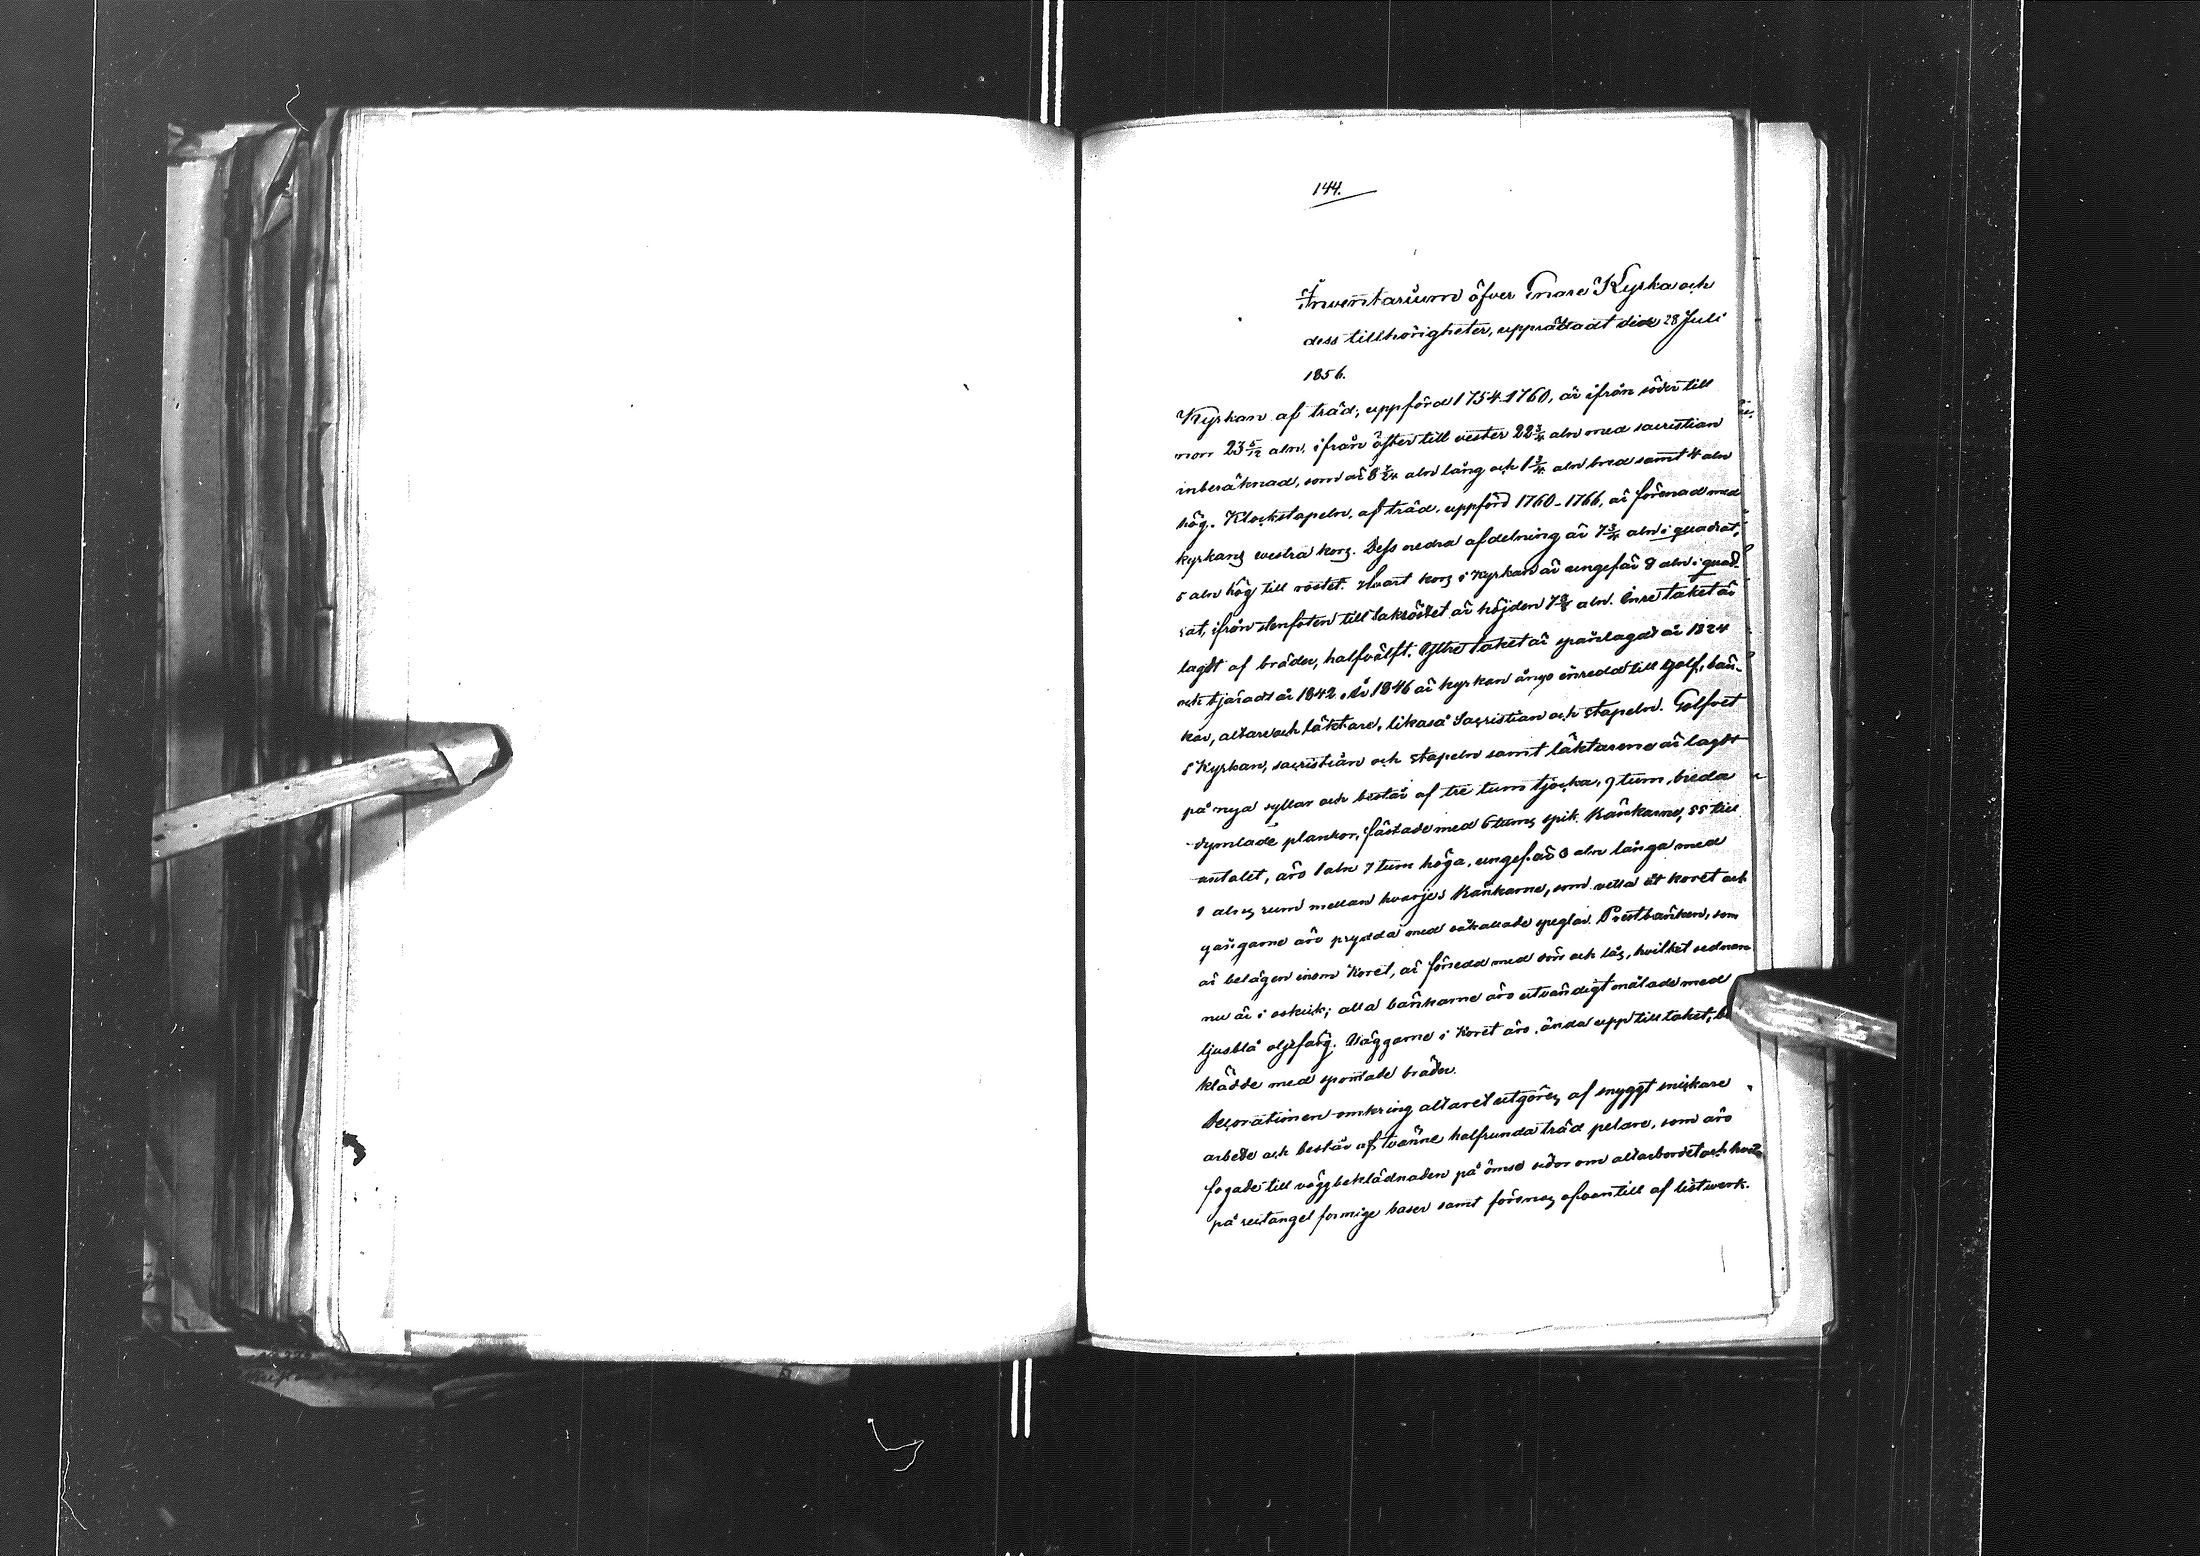 144.
Inventarium öfver Enare Kyrka och
dess tillhörigheter, upprättadt den 28 Juli
1856.
Kyrkan af träd, uppförd 1754-1760, är ifrån söder till
norr 23 5/12 aln, ifrån öster till vester 22 3/4 aln med sacristian
inberäknad, som är aln lång och aln bred samt 4 aln
hög. Klockstapeln, af träd, uppförd 1760-1766, är förenad med
kyrkans vestra kors. Dess nedra afdelning är 7 3/4 aln i quadrat,
5 aln hög till röstet. Hvart kors i Kyrkan är ungefär 8 aln i quad-
rat, ifrån stenfoten till takröstet är höjden aln. Inre taket är
lagdt af bräder, halfvälft. Yttre taket är spånlagdt år 1824
och tjäradt år 1842. År 1846 är kyrkan ånyo inredd till golf, bän-
kar, altare och läktare, likaså Sacristian och stapeln. Golfvet
i Kyrkan, sacristian och stapeln samt läktarene är lagdt
på nya syllar och består af tre tum tjocka, 9 tum breda
dymlade plankor, fästade med 6 tums spik. Bänkarne, 55 till
antalet, äro 1 aln 7 tum höga, ungefär 3 aln långa med
1 alns rum mellan hvarje. Bänkarne, som vetta åt koret och
gångarne äro prydda med såkallade speglar. Prestbänken, som
är belägen inom Koret, är försedd med dörr och lås, hvilket sednare
nu är i oskick; alla bänkarne äro utvändigt målade med
ljusblå oljefärg. Väggarne i Koret äro, ända upp till taket, be
klädde med spontade bräder.
Decorationen omkring altaret utgöres af snyggt snickare
arbete och består af tvänne halfrunda träd pelare, som äro
fogade till väggbeklädnaden på ömse sidor om altarbordet och hvila
på rectangel formige baser samt förenas ofvantill af listverk.